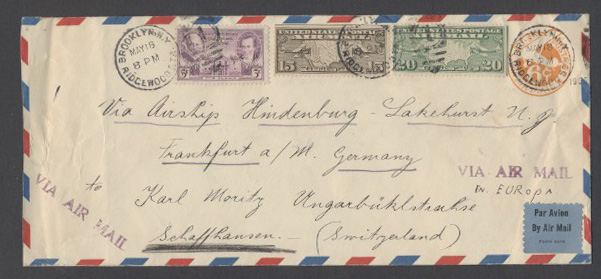 BROOKLYN, N.Y.
MAY 18
8 PM
RIDGEWOOD STA.
UNITED STATES POSTAGE
15
UNITED STATES POSTAGE
20
BROOKLYN, N.Y.
Via Airship Hindenburg - Lakehurst N.J.
Frankfurt a/M. Germany
VIA AIR MAIL
In EUROPA
VIA AIR MAIL
to Karl Moritz Ungarbühlstrahse
Schaffhausen - (Switzerland)
Par Avion
By Air Mail